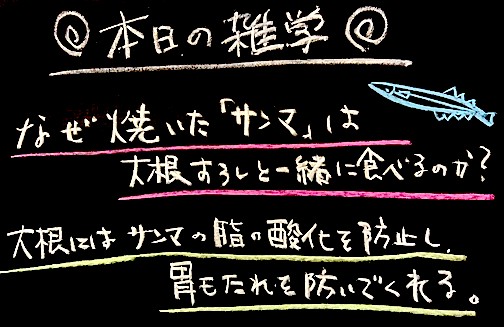 本日の雑学
なぜ焼いた「サンマ」は
大根すろしと一緒に食べるのか?
大根にはサンマの脂の酸化を防止し、
胃もたれを防いでくれる。